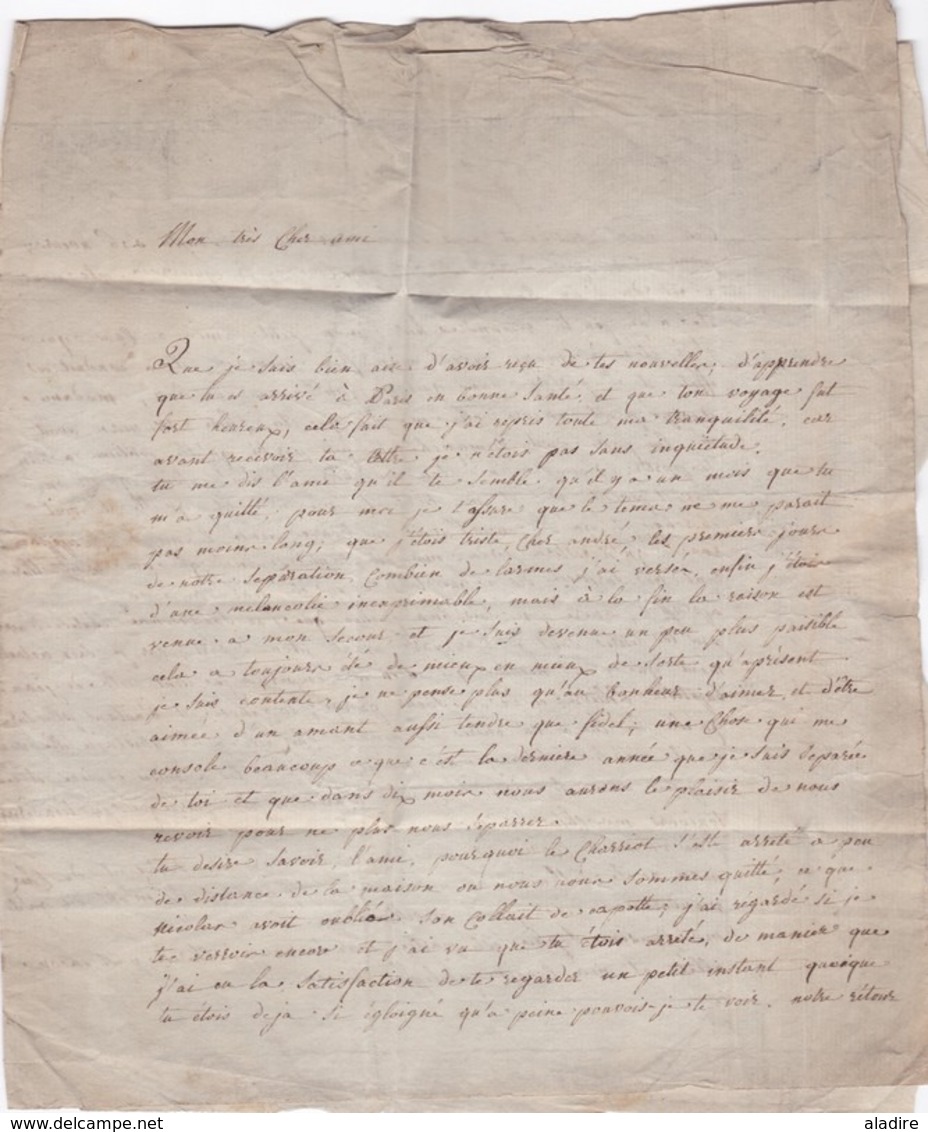 Mon très Cher ami
Que je suis bien aise d'avoir reçu de tes nouvelles, d'apprendre
que tu es arrivé à Paris en bonne santé, et que ton voyage fut
fort heureux, cela fait que j'ai repris toute ma tranquilité, car
avant recevoir ta lettre je n'étois pas sans inquiétude.
tu me dis l'ami qu'il te semble qu'il y a un mois que tu
m'a quitté, pour moi je t'assure que le tems ne me parait
pas moins long, que j'étois triste, Cher andré, les premier jours
de notre separation, combien de larmes j'ai versée, enfin j'étois
d'une mélancolie inexprimable, mais à la fin la raison est
venue a mon secour et je suis devenue un peu plus paisible
cela a toujours été de mieux en mieux de sorte qu'apresent
je suis contente, je ne pense plus qu'au bonheur d'aimer et d'être
aimée d'un amant aussi tendre que fidel; une chose qui me
console beaucoup ce que c'est la derniere année que je suis separée
de toi et que dans dix mois nous aurons le plaisir de nous
revoir pour ne plus nous séparrer.
tu desire savoir, l'ami, pourquoi le Charriot s'est arrêté a peu
de distance de la maison ou nous nous sommes quitté, ce que
nicolas avoit oublié son collait de capotte; j'ai regardé si je
te verrois encore et j'ai vu que tu étois arrêté, de manier que
j'ai eu la satisfaction de te regarder un petit instant quoique
tu étois deja si égloigné qu'a peine pouvois-je te voir. notre rétour
aladire